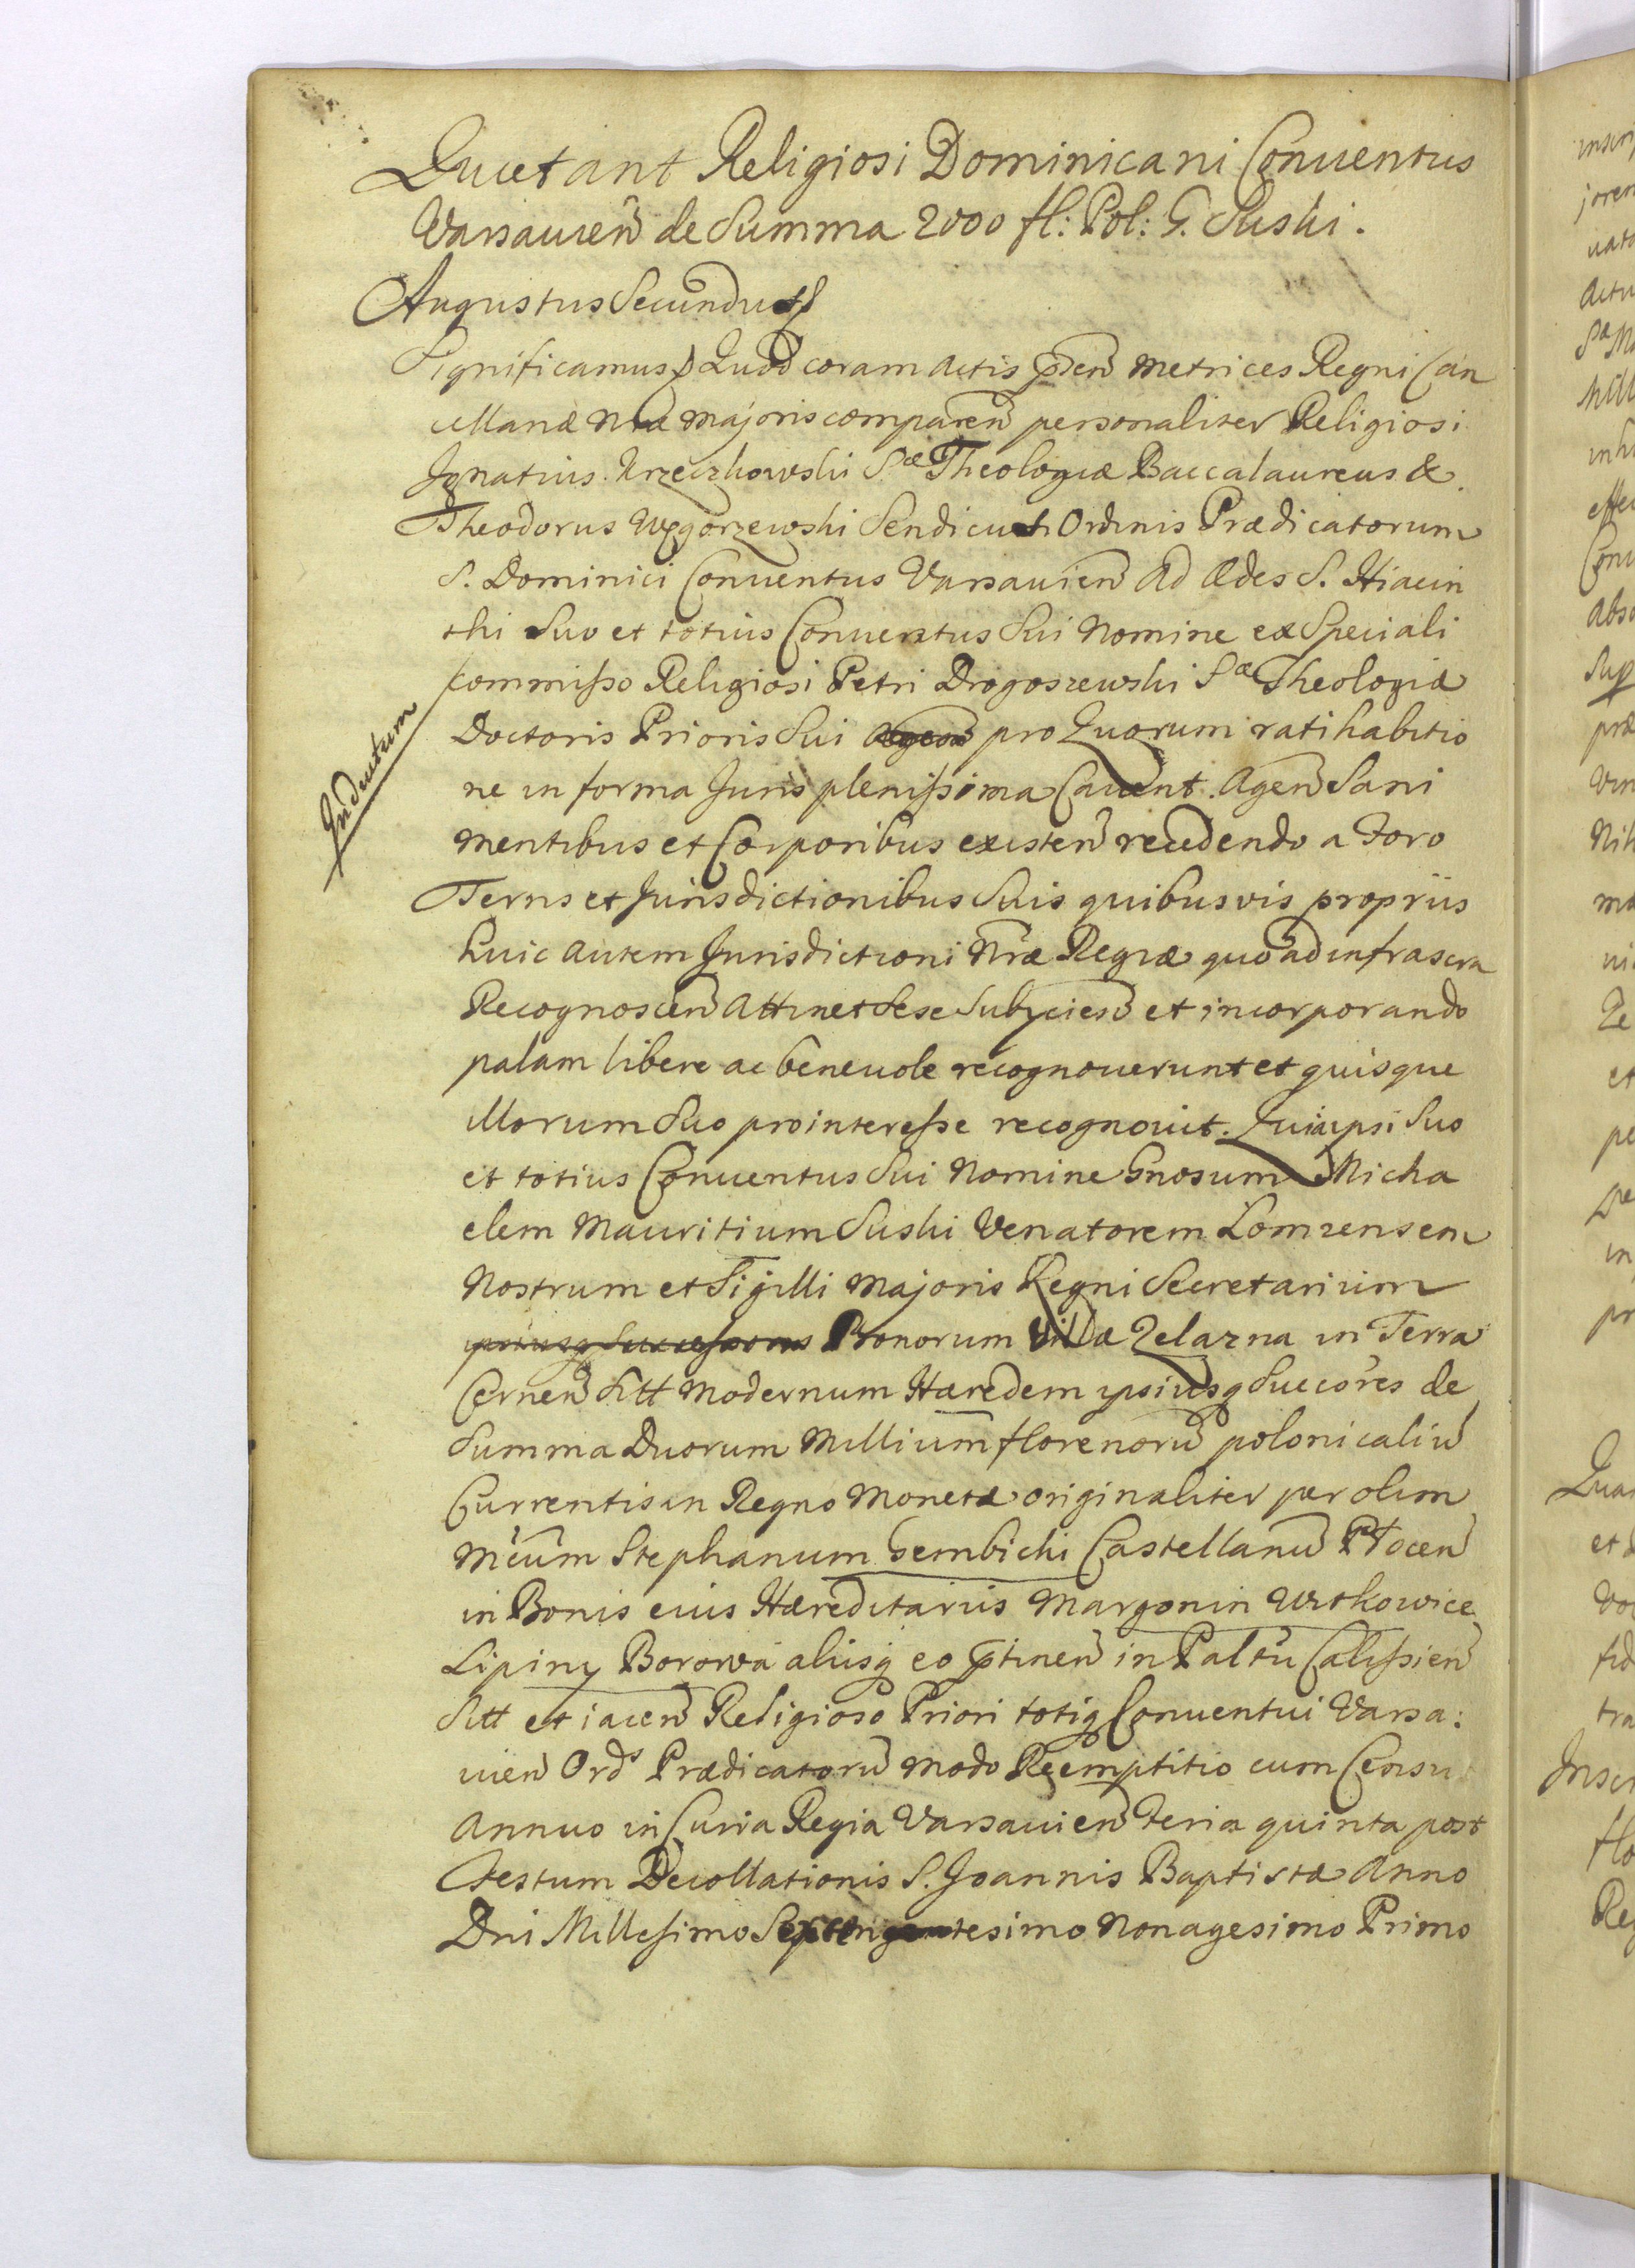 Quietant Religiosi Dominicani Conventus
Varsavien̄ de Summa 2000 fl: Pol: G. Suski.
Augustus Secundus
Significamus Quod coram Actis p̄sen̄ Metrices Regni Can
cellariæ Nr̄æ Majoris comparen̄ personaliter Religiosi
Ignatius Krzeczkowski Sæ Theologiæ Baccalaureus &
Theodorus Węgorzewski Sendicus Ordinis Prædicatorum
S. Dominici Conventus Varsavien̄ Ad Ædes S. Hiacin
thi Suo et totius Conventus Sui Nomine ex Speciali
commisso Religiosi Petri Drogoszewski Sæ Theologiæ
Doctoris Prioris Sui pro Quorum ratihabitio
ne in forma Juris plenissima Cavent. Agen̄ Sani
Mentibus et Corporibus existen̄ recedendo a Foro
Terris et Jurisdictionibus Suis quibusvis propriis
huic autem Jurisdictioni Nr̄æ Regiæ quo ad infrascra
Recognoscen̄ Attinet Sese Subijcien̄ et incorporando
palam libere ac benevole recognoverunt et quisque
illorum Suo pro interesse recognovit. Quia ipsi Suo
et totius Conventus Sui Nomine Gnosum Micha
elem Mauritium Suski Venatorem Lomzensem
Nostrum et Sigilli Majoris Regni Secretarium
ipsiusq Successores Bonorum Villæ Zelazna in Terra
Cernen̄ Sitt Modernum Hæredem ipsiusq Succōres de
Summa Duorum Millium florenorū polonicaliū
Currentis in Regno Monetæ originaliter per olim
Mc̄um Stephanum Gembicki Castellanū Plocen̄
in Bonis eius Hæreditariis Margonin Witkowice
Lipiny Borowa aliisq eo p̄tinen̄ in Paltū Calissien̄
Sitt et iacen̄ Religioso Priori totiq Conventui Varsa:
vien̄ Ords Prædicatorū modo Reemptitio cum Censu
Annuo in Curia Regia Varsavien̄ Feria quinta post
Festum Decollationis S. Joannis Baptistæ Anno
Dni Millesimo Sexcentesimo Nonagesimo Primo
Inductum